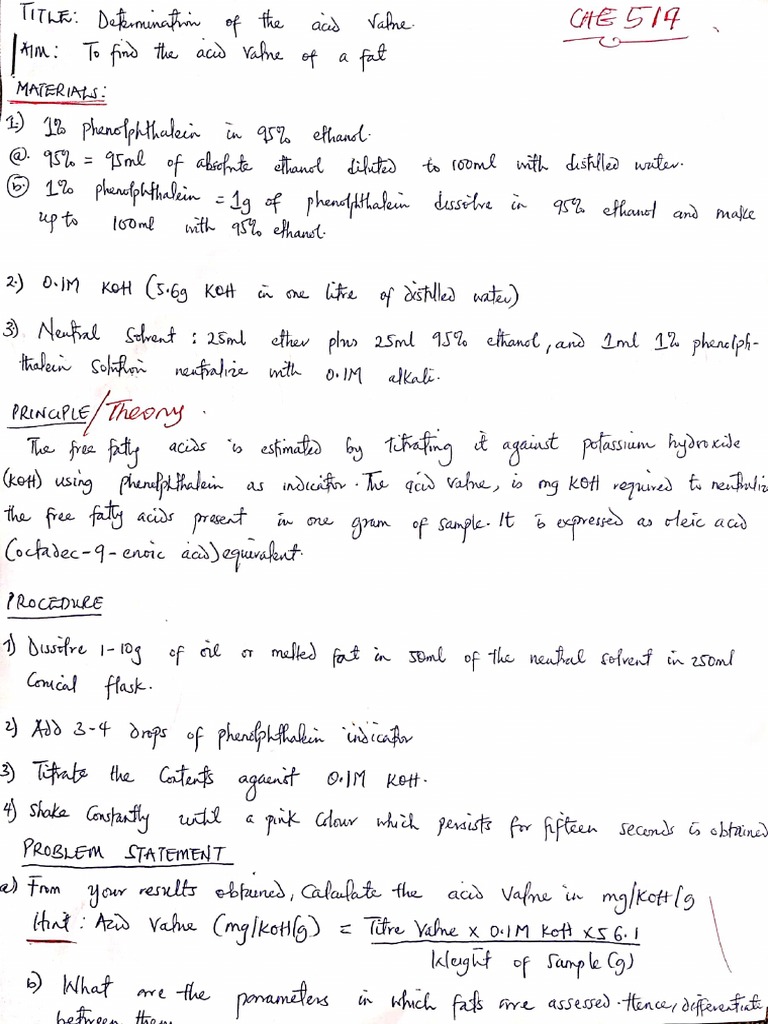 TITLE: Determination of the acid value.
CHE 514
AIM: To find the acid value of a fat
MATERIALS:
1.) 1% phenolphthalein in 95% ethanol.
(a). 95% = 95ml of absolute ethanol diluted to 100ml with distilled water.
(b). 1% phenolphthalein = 1g of phenolphthalein dissolve in 95% ethanol and make
up to 100ml with 95% ethanol.
2.) 0.1M KOH (5.6g KOH in one litre of distilled water)
3) Neutral Solvent : 25ml ether plus 25ml 95% ethanol, and 1ml 1% phenolph-
thalein solution neutralize with 0.1M alkali.
PRINCIPLE/Theory.
The free fatty acids is estimated by titrating it against potassium hydroxide
(KOH) using phenolphthalein as indicator. The acid value, is mg KOH required to neutralize
the free fatty acids present in one gram of sample. It is expressed as oleic acid
(octadec-9-enoic acid) equivalent.
PROCEDURE
1) Dissolve 1-10g of oil or melted fat in 50ml of the neutral solvent in 250ml
Conical flask.
2) Add 3-4 drops of phenolphthalein indicator
3) Titrate the Contents against 0.1M KOH.
4) Shake Constantly until a pink Colour which persists for fifteen seconds is obtained
PROBLEM STATEMENT
a) From your results obtained, Calculate the acid value in mg/KOH/g
Hint: Acid Value (mg/KOH/g) = Titre Value x 0.1M KOH x 56.1
Weight of sample (g)
b) What are the parameters in which fats are assessed. Hence, differentiate
between them